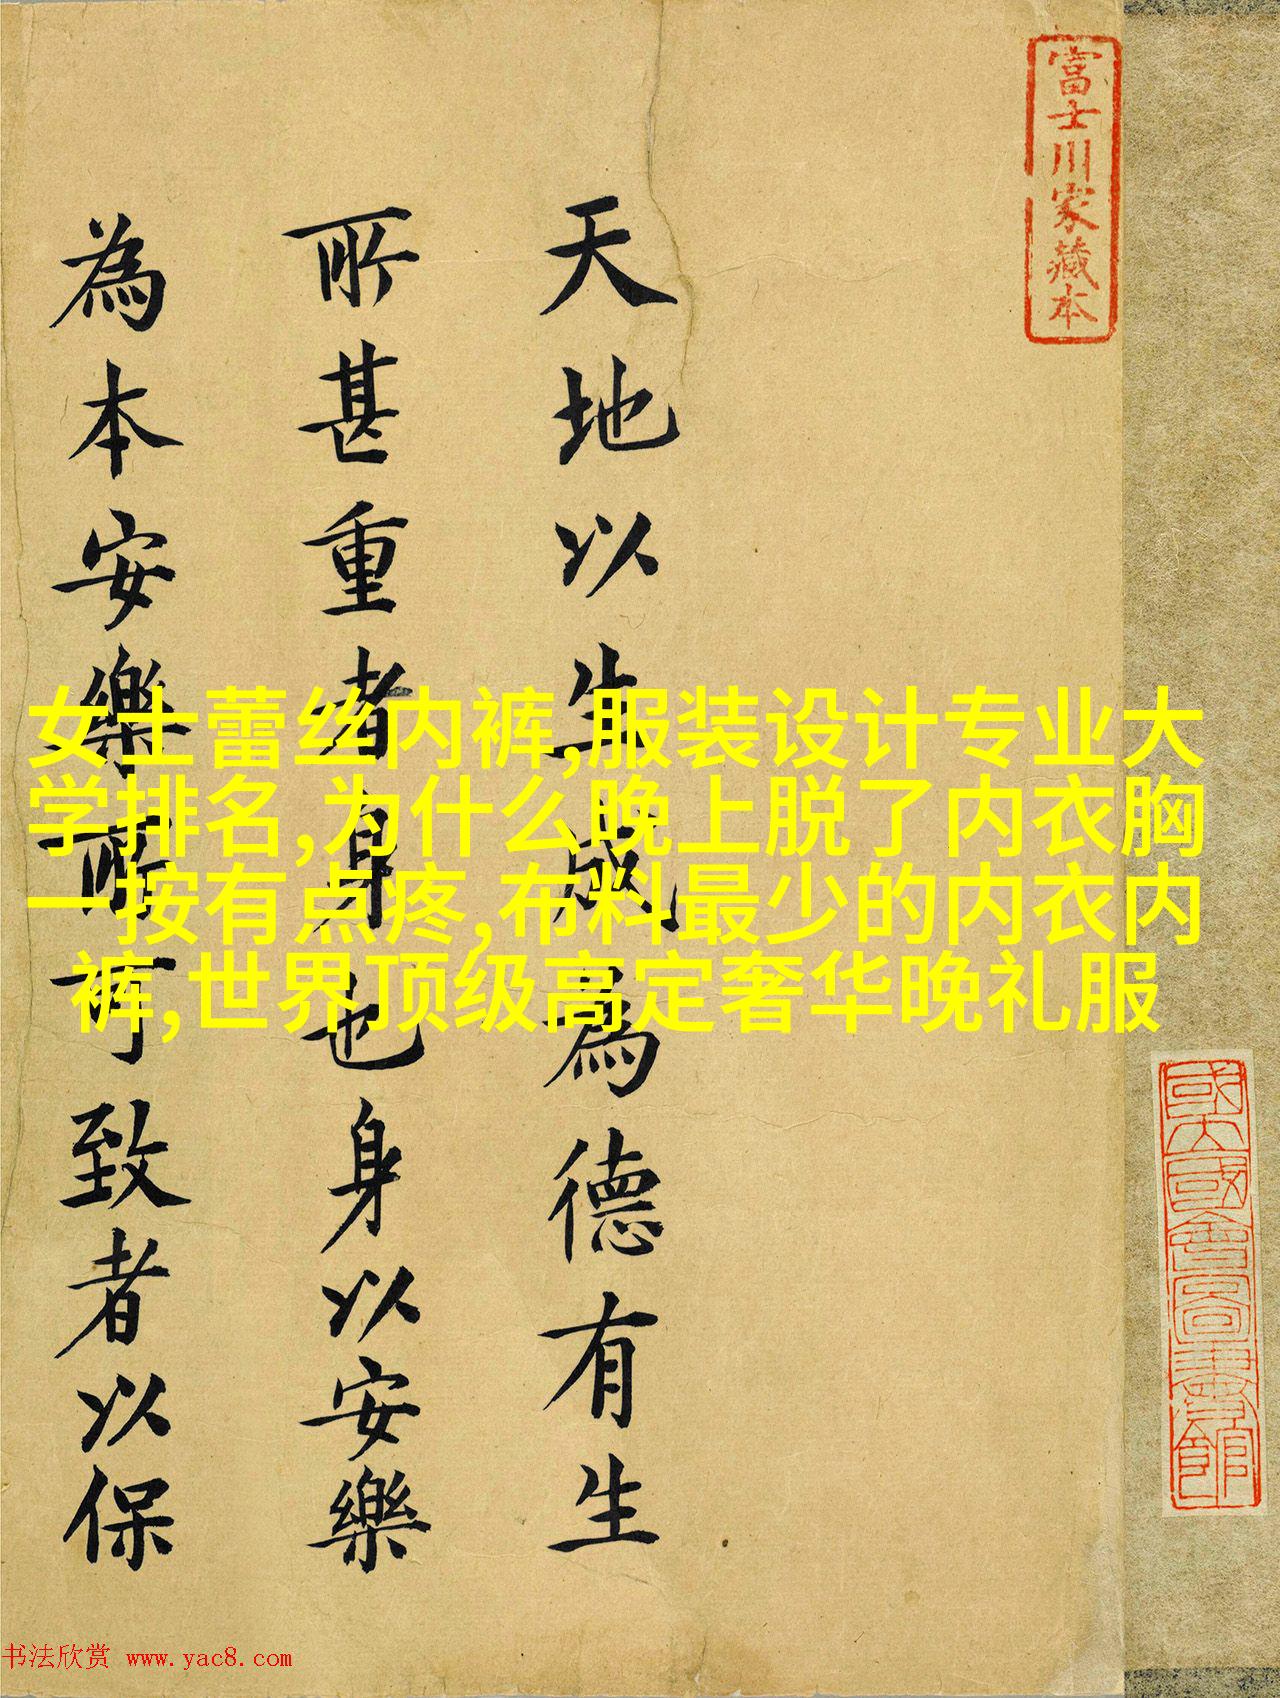 富士川家藏本
天地以生成為德有生
所甚重者身也身以安樂
為本安樂所可致者以保
女士蕾丝内裤,服装设计专业大
学排名,为什么晚上脱了内衣胸
一按有点疼,布料最少的内衣内
裤,世界顶级高定奢华晚礼服
书法欣赏 www.yac8.com